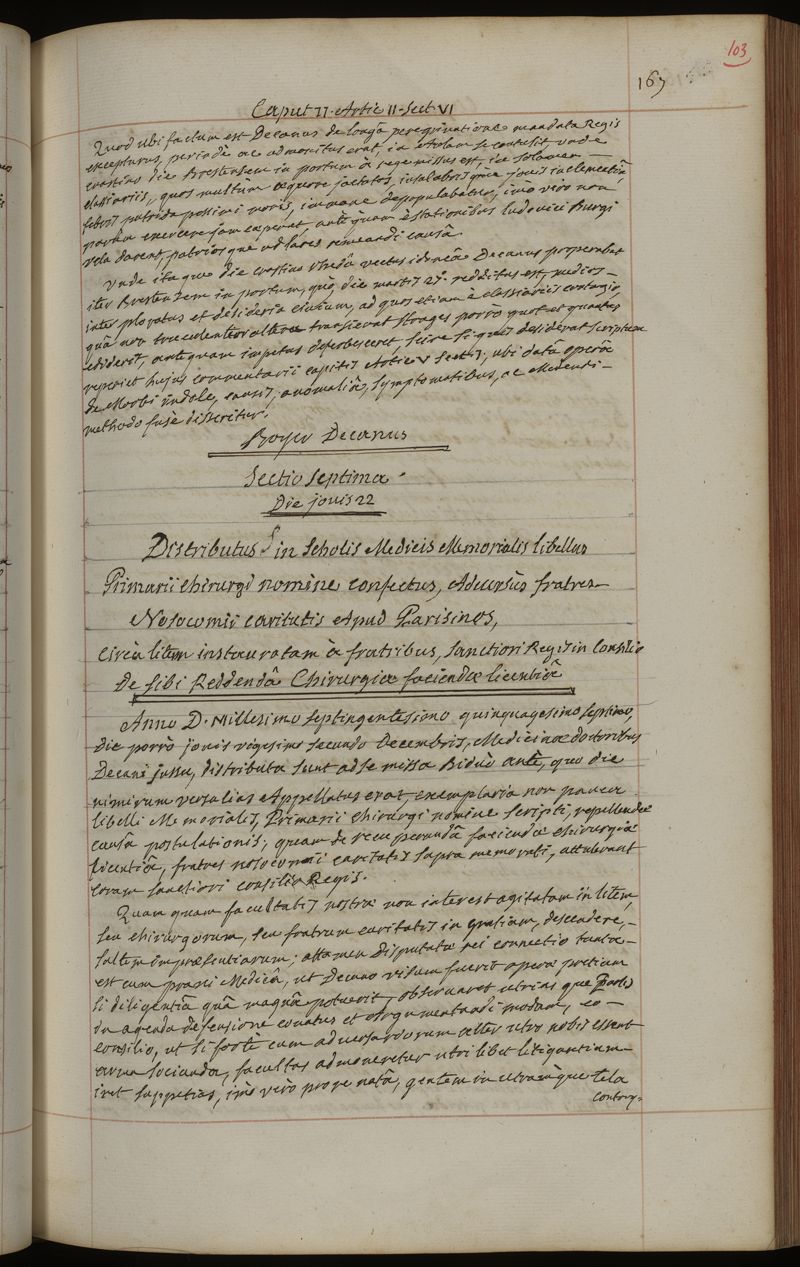 103
167
Caput II. Artic II - Sect VI
Quod ubi factum est Decanus de longâ peregrinatione mandata Regis
excepturus, perindè ac admonitus erat, in Aulam se contulit unde
crastinâ die Brestensem in portum à rege missus est, in solamen
classiariis, quos multùm aequore jactatos, insalubrisque jovis inclementiâ,
febris putrida pessimi moris, immane depopulabatur, imo vero non
portu exercere jam caeperat, antequam è stationibus ludovici Burgi
vela darent, patriosque ad lares remeandi causâ.
Unde itaque die crastinâ Rhedâ vectus idoneâ Decanus properabat
iter Brestensem in portum, quò die martis 27. redditus est, medios
inter ploratus et desideria civium, ad quos etiam è classiariis contagio
quâ non truculentior altera transierat strages porro quot et quantas
ediderit, antequam impetus deferbesceret, scire si quis desiderat scriptum
reperiet hujus commentarii capitis Artic V Sect 3, ubi datâ operâ
de Morbi indole, causis, anomaliâ, symptomatibus, ac Medendi
methodo fusè disseritur.
Boyer Decanus
Sectio Septima
Die jovis 22
Distributus in Scholis Medicis Memorialis libellus
Primarii chirurgi nomine confectus, Adversùs fratres
Nosocomii caritatis Apud Parisinos,
circà litem instauratam à fratribus, sanctiori Regis in Consilio
de sibi Reddendâ Chirurgiae faciendae licentiâ
Anno D. Millesimo septingentesimo quinquagesimo septimo,
die porrò jovis vigesimo secundo Decembris, Medicinae doctoribus
Decani jussu, distributa sunt ad se missa Biduò antè, quo die
nimirum versalias Appellatus erat, exemplaria non pauca
libelli Memorialis, Primarii chirurgi nomine scripti, repellendae
causâ postulationis, quam de recuperandâ faciendae chirurgiae
licentiâ, fratres nosocomii caritatis supra memorati, attulerant
coram sanctiori consilio Regis.
Quamquam facultatis nostrae non interest agitatam in litem,
seu chirurgorum, seu fratrum caritatis in gratiam, descendere,
saltem in praesentiarum; attamen disputatae rei connectio tanta
est cum praxi Medicâ, ut Decano visum fuerit operae pretium
si diligentiâ quâ magnâ potuerit, observaret utrius que Partis
in agenda defensione conatus et argumentandi modum, eo
consilio, ut si fortè cum adversariorum altero utro nobis essent
arma socianda, facultas admoneretur utri libet litigantium
iret suppetias, imò verò prope natâ, gentem in utramque tela